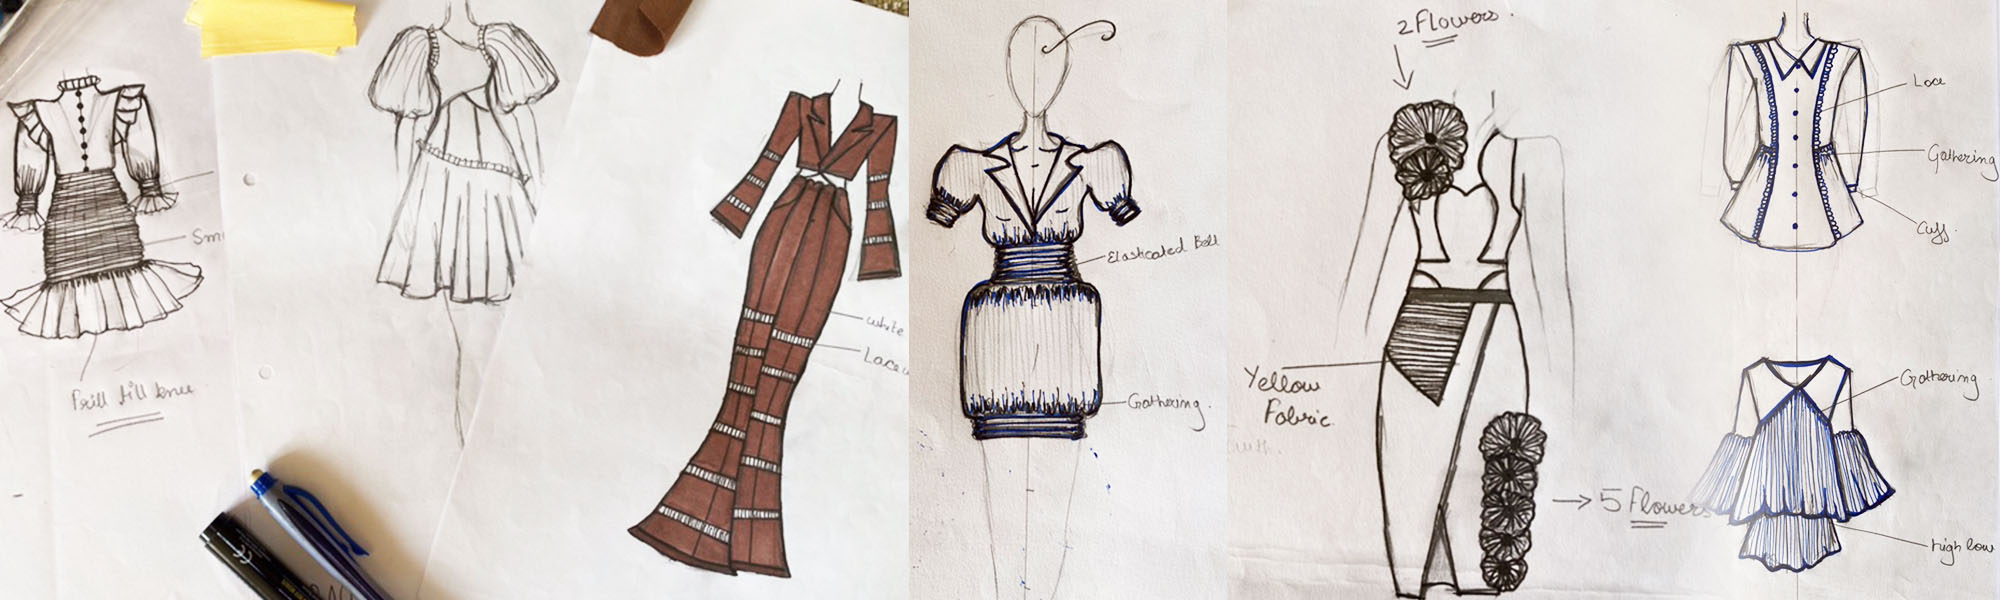 Frill till knee
White
Lace
Elasticated Belt
Gathering.
2 Flowers.
Yellow
Fabric.
5 Flowers
Lace
Gathering
Cuff.
Gathering
high low